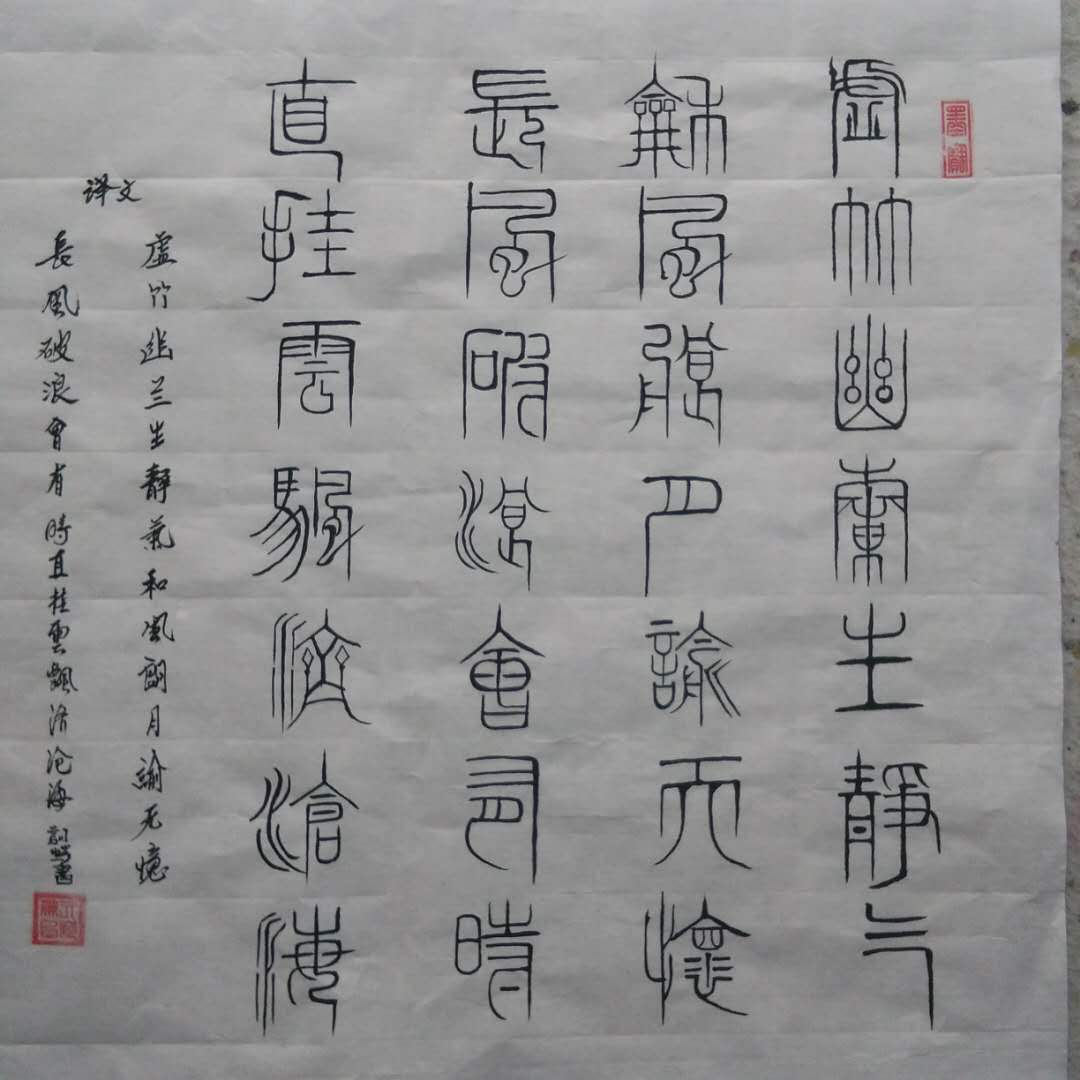 虛竹幽蘭生靜气
龢風朗月諭天懷
長風破浪會有時
直挂雲颿濟滄海
译文
虚竹幽兰生静氣和風朗月諭天憶
長風破浪會有時直挂雲飄济沧海
書